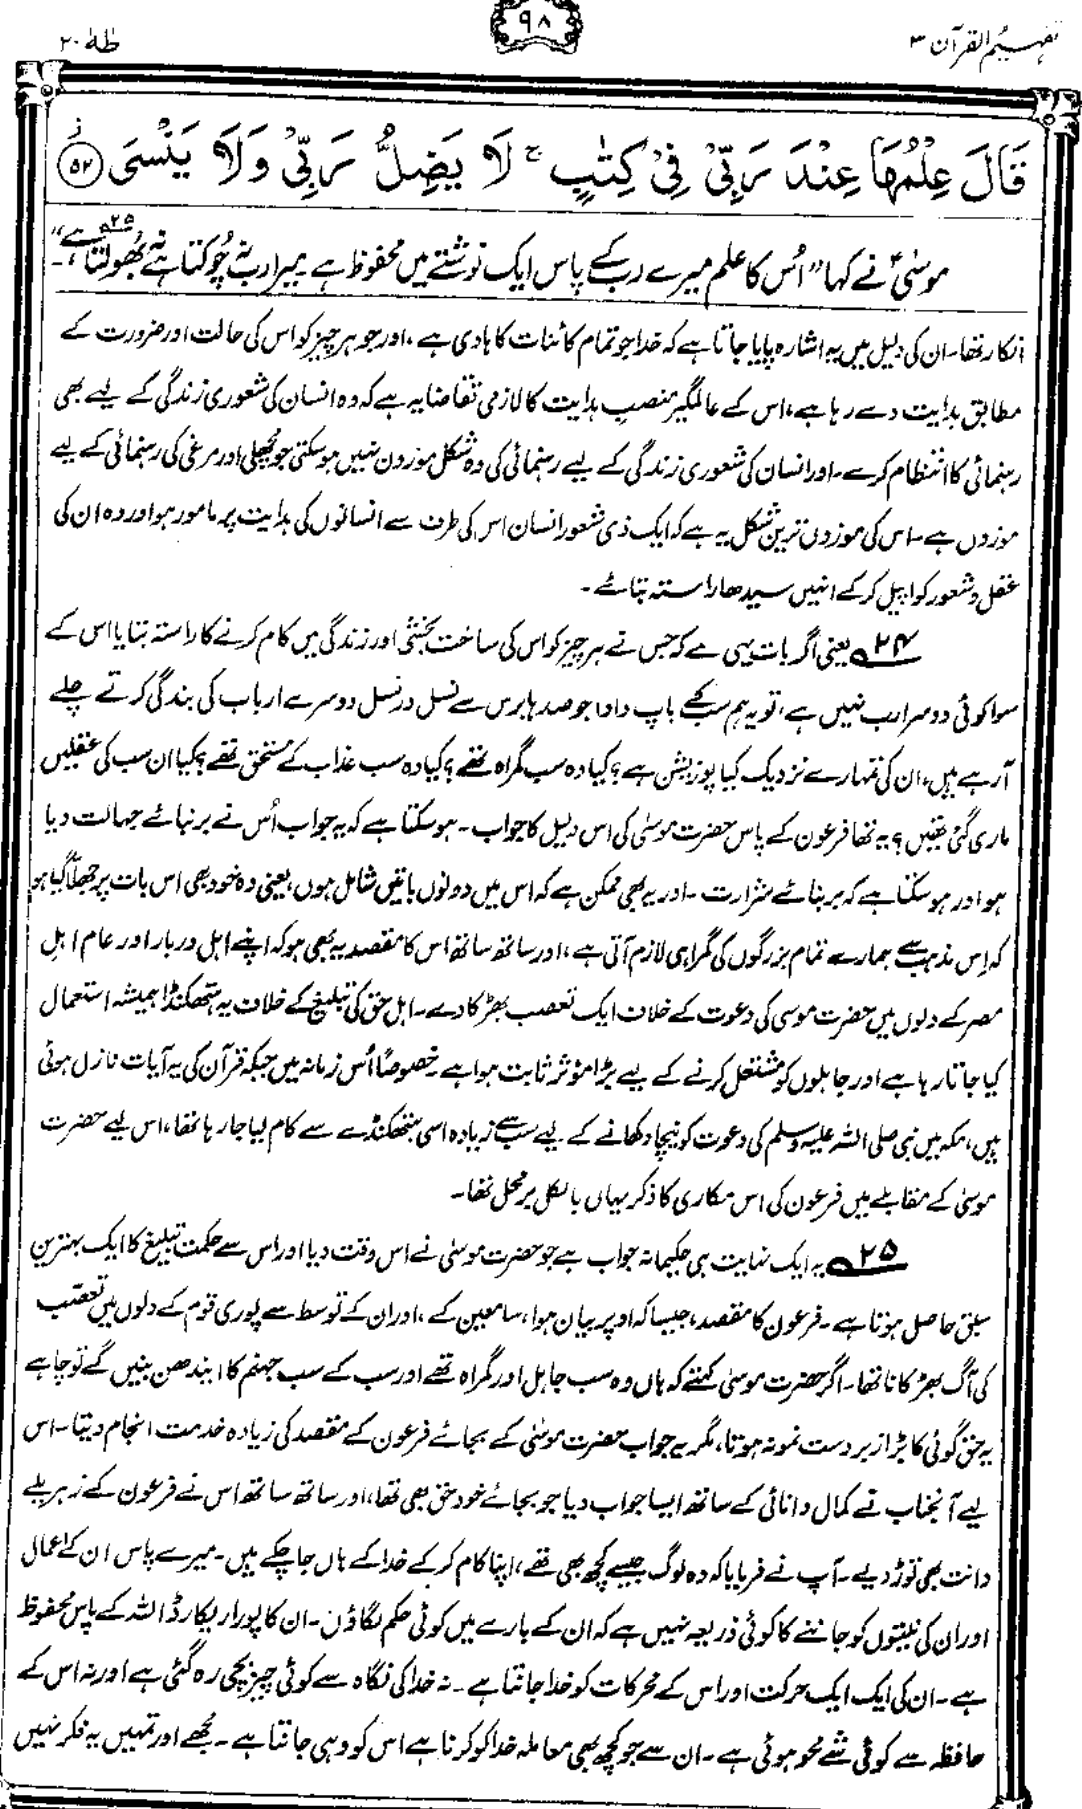 تفہیم القرآن ۳
۹۸
طٰہٰ ۲۰
قَالَ عِلْمُهَا عِنْدَ رَبِّیْ فِیْ كِتٰبٍ ۚ لَا یَضِلُّ رَبِّیْ وَلَا یَنْسَی ۟ۙ ﴿۵۲﴾
موسٰیؑ نے کہا ”اُس کا علم میرے رب کے پاس ایک نوشتے میں محفوظ ہے۔ میرا رب نہ چُوکتا ہے نہ بھُولتا ہے۲۵۔“
انکار تھا۔ ان کی دلیل میں یہ اشارہ پایا جاتا ہے کہ خدا جو تمام کائنات کا ہادی ہے، اور جو ہر چیز کو اس کی حالت اور ضرورت کے
مطابق ہدایت دے رہا ہے، اس کے عالمگیر منصبِ ہدایت کا لازمی تقاضا یہ ہے کہ وہ انسان کی شعوری زندگی کے لیے بھی
رہنمائی کا انتظام کرے۔ اور انسان کی شعوری زندگی کے لیے رہنمائی کی وہ شکل موزوں نہیں ہوسکتی جو مچھلی اور مرغی کی رہنمائی کے لیے
موزوں ہے۔ اس کی موزوں ترین شکل یہ ہے کہ ایک ذی شعور انسان اس کی طرف سے انسانوں کی ہدایت پر مامور ہو اور وہ ان کی
عقل و شعور کو اپیل کرکے انہیں سیدھا راستہ بتائے۔
۲۴ یعنی اگر بات یہی ہے کہ جس نے ہر چیز کو اس کی ساخت بخشی اور زندگی میں کام کرنے کا راستہ بتایا اس کے
سوا کوئی دوسرا رب نہیں ہے، تو یہ ہم سب کے باپ دادا جو صدہا برس سے نسل در نسل دوسرے ارباب کی بندگی کرتے چلے
آرہے ہیں، ان کی تمہارے نزدیک کیا پوزیشن ہے؟ کیا وہ سب گمراہ تھے؟ کیا وہ سب عذاب کے مستحق تھے؟ کیا ان سب کی عقلیں
ماری گئی تھیں؟ یہ تھا فرعون کے پاس حضرت موسیٰ کی اس دلیل کا جواب۔ ہوسکتا ہے کہ یہ جواب اُس نے بربنائے جہالت دیا
ہو اور ہوسکتا ہے کہ بربنائے شرارت۔ اور یہ بھی ممکن ہے کہ اس میں دونوں باتیں شامل ہوں، یعنی وہ خود بھی اس بات پر جھلّا گیا ہو
کہ اِس مذہب سے ہمارے تمام بزرگوں کی گمراہی لازم آتی ہے، اور ساتھ ساتھ اس کا مقصد یہ بھی ہو کہ اپنے اہل دربار اور عام اہل
مصر کے دلوں میں حضرت موسیٰ کی دعوت کے خلاف ایک تعصب بھڑکا دے۔ اہل حق کی تبلیغ کے خلاف یہ ہتھکنڈا ہمیشہ استعمال
کیا جاتا رہا ہے اور جاہلوں کو مشتعل کرنے کے لیے بڑا مؤثر ثابت ہوا ہے۔ خصوصًا اُس زمانہ میں جبکہ قرآن کی یہ آیات نازل ہوئی
ہیں، مکہ میں نبی صلی اللہ علیہ وسلم کی دعوت کو نیچا دکھانے کے لیے سب سے زیادہ اسی ہتھکنڈے سے کام لیا جارہا تھا، اس لیے حضرت
موسیٰ کے مقابلے میں فرعون کی اس مکاری کا ذکر یہاں بالکل برمحل تھا۔
۲۵ یہ ایک نہایت ہی حکیمانہ جواب ہے جو حضرت موسیٰ نے اس وقت دیا اور اس سے حکمتِ تبلیغ کا ایک بہترین
سبق حاصل ہوتا ہے۔ فرعون کا مقصد، جیسا کہ اوپر بیان ہوا، سامعین کے، اور ان کے توسط سے پوری قوم کے دلوں میں تعصّب
کی آگ بھڑکانا تھا۔ اگر حضرت موسیٰ کہتے کہ ہاں وہ سب جاہل اور گمراہ تھے اور سب کے سب جہنم کا ایندھن بنیں گے تو چاہے
یہ حق گوئی کا بڑا زبردست نمونہ ہوتا، مگر یہ جواب حضرت موسٰیؑ کے بجائے فرعون کے مقصد کی زیادہ خدمت انجام دیتا۔ اس
لیے آنجناب نے کمال دانائی کے ساتھ ایسا جواب دیا جو بجائے خود حق بھی تھا، اور ساتھ ساتھ اس نے فرعون کے زہریلے
دانت بھی توڑ دیے۔ آپ نے فرمایا کہ وہ لوگ جیسے کچھ بھی تھے، اپنا کام کرکے خدا کے ہاں جاچکے ہیں۔ میرے پاس ان کے اعمال
اور ان کی نیتوں کو جاننے کا کوئی ذریعہ نہیں ہے کہ ان کے بارے میں کوئی حکم لگاؤں۔ ان کا پورا ریکارڈ اللہ کے پاس محفوظ
ہے۔ ان کی ایک ایک حرکت اور اس کے محرکات کو خدا جانتا ہے۔ نہ خدا کی نگاہ سے کوئی چیز بچی رہ گئی ہے اور نہ اس کے
حافظہ سے کوئی شے محو ہوئی ہے۔ ان سے جو کچھ بھی معاملہ خدا کو کرنا ہے اس کو وہی جانتا ہے۔ مجھے اور تمہیں یہ فکر نہیں